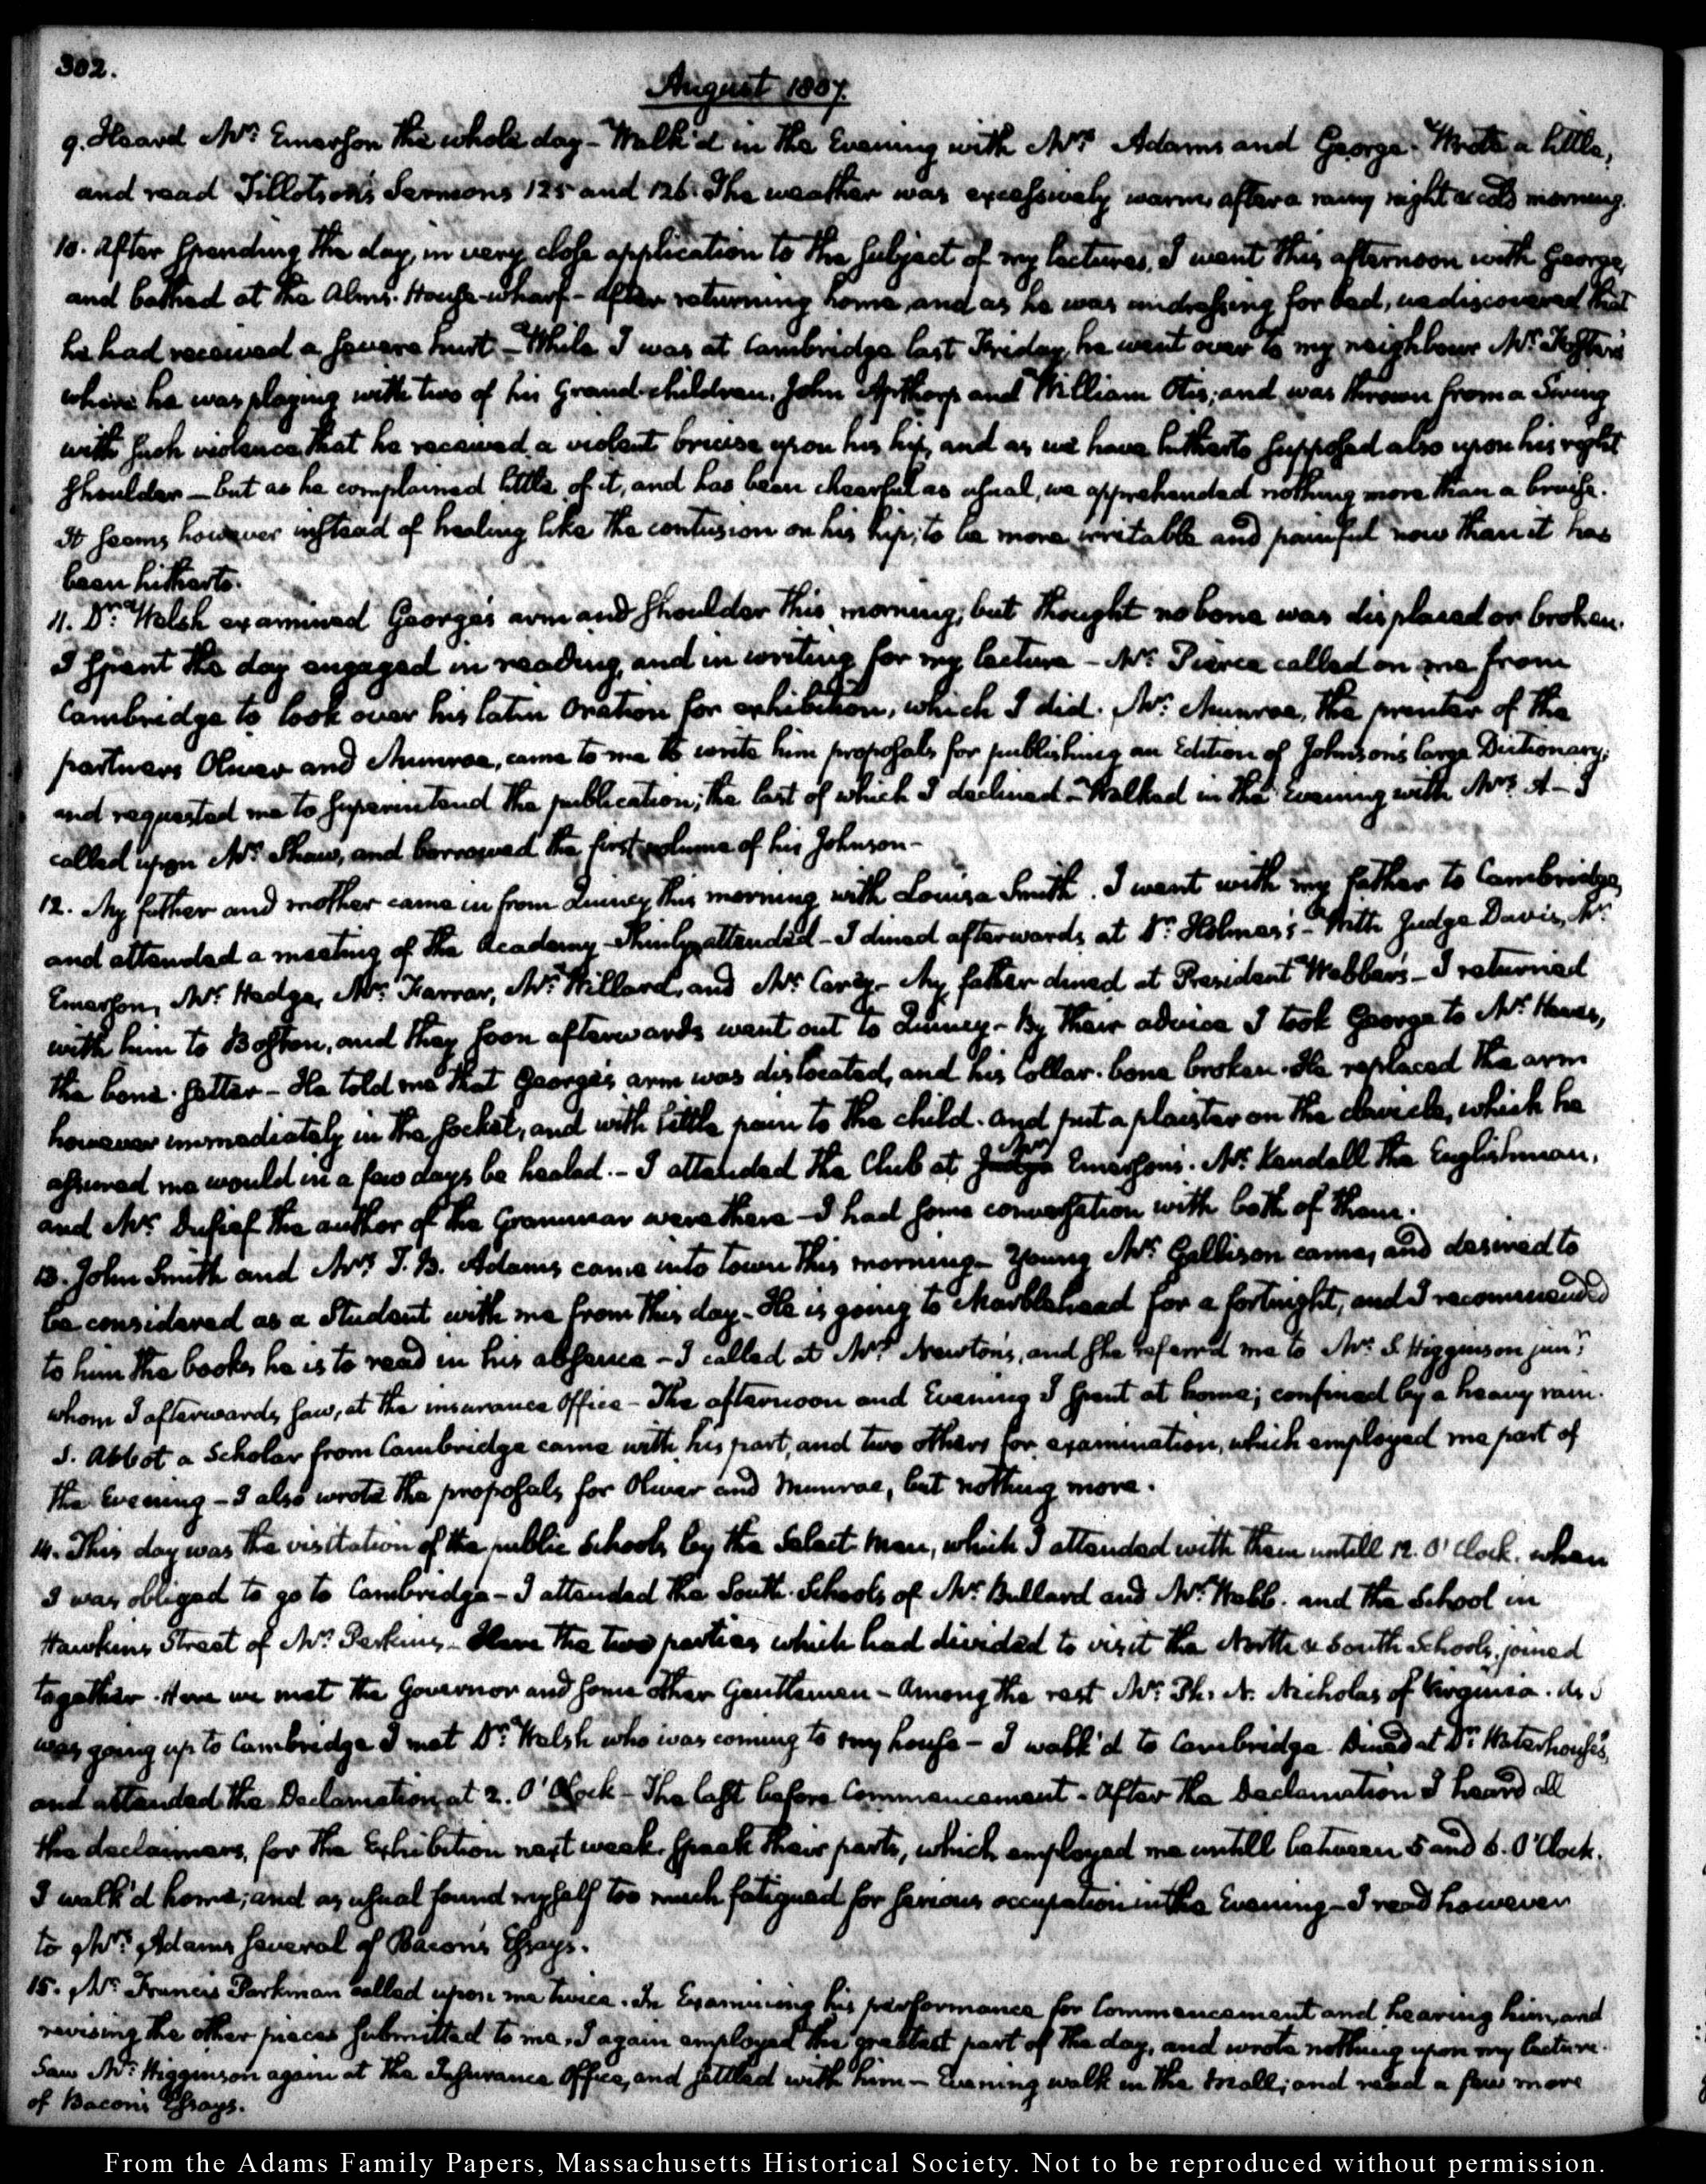 302.
August 1807.
9. Heard Mr: Emerson the whole day - Walk'd in the Evening with Mrs: Adams and George. Wrote a little,
and read Tillotson's Sermons 125 and 126. The weather was excessively warm, after a rainy night & cold morning.
10. After spending the day, in very close application to the subject of my lectures, I went this afternoon with George,
and bathed at the Alms-House-wharf - After returning home, and as he was undressing for bed, we discovered that
he had received a severe hurt - While I was at Cambridge last Friday, he went over to my neighbour Mr: Foster's
where he was playing with two of his Grand-children, John Apthorp and William Otis; and was thrown from a Swing
with such violence, that he received a violent bruise upon his hip, and as we have hitherto supposed also upon his right
shoulder - but as he complained little of it, and has been cheerful as usual, we apprehended nothing more than a bruise.
It seems however instead of healing like the contusion on his hip, to be more irritable and painful now than it has
been hitherto.
11. Dr: Welsh examined George's arm and shoulder this morning; but thought no bone was displaced or broken.
I spent the day engaged in reading, and in writing for my lecture - Mr: Pierce called on me from
Cambridge to look over his latin Oration for exhibition, which I did. Mr: Munroe, the printer of the
partners Oliver and Munroe, came to me to write him proposals for publishing an Edition of Johnson's large Dictionary;
and requested me to superintend the publication; the last of which I declined - Walked in the evening with Mrs: A - I
called upon Mr: Shaw, and borrowed the first volume of his Johnson -
12. My father and mother came in from Quincy this morning with Louisa Smith. I went with my father to Cambridge,
and attended a meeting of the Academy - Thinly attended - I dined afterwards at Dr: Holmes's - With Judge Davis, Mr:
Emerson, Mr: Hedge, Mr: Farrar, Mr: Willard, and Mr: Carey - My father dined at President Webber's - I returned
with him to Boston, and they soon afterwards went out to Quincy - By their advice I took George to Mr: Hewes,
the bone-setter - He told me that George's arm was dislocated, and his collar-bone broken. He replaced the arm
however immediately in the socket, and with little pain to the child. and put a plaister on the clavicle, which he
assured me would in a few days be healed. - I attended the Club at Judge Mr: Emerson's. Mr: Kendall the Englishman,
and Mr: Dufief the author of the Grammar were there - I had some conversation with both of them.
13. John Smith and Mrs: T. B. Adams came into town this morning - Young Mr: Gallison came, and desired to
be considered as a Student with me from this day - He is going to Marblehead for a fortnight, and I recommended
to him the books he is to read in his absence - I called at Mrs: Newton's, and she referr'd me to Mr: S. Higginson junr:
whom I afterwards saw, at the insurance Office - The afternoon and Evening I spent at home; confined by a heavy rain.
S. Abbot a Scholar from Cambridge came with his part, and two others for examination, which employed me part of
the Evening - I also wrote the proposals for Oliver and Munroe, but nothing more.
14. This day was the visitation of the public Schools by the Select Men, which I attended with them untill 12. O'Clock. when
I was obliged to go to Cambridge - I attended the South Schools of Mr: Bullard and Mr: Webb. and the School in
Hawkins Street of Mr: Perkins - Here the two parties which had divided to visit the North & South Schools, joined
together. Here we met the Governor and some other Gentlemen - Among the rest Mr: Ph: N. Nicholas of Virginia. As I
was going up to Cambridge I met Dr: Welsh who was coming to my house - I walk'd to Cambridge. Dined at Dr: Waterhouse's,
and attended the Declamation at 2. O'Clock - The last before Commencement - After the Declamation I heard all
the declaimers, for the Exhibition next week, speak their parts, which employed me untill between 5 and 6. O'Clock.
I walk'd home; and as usual found myself too much fatigued for serious occupation in the Evening - I read however
to Mrs: Adams several of Bacon's Essays.
15. Mr: Francis Parkman called upon me twice. In Examining his performance for Commencement and hearing him, and
revising the other pieces submitted to me, I again employed the greatest part of the day, and wrote nothing upon my lecture.
Saw Mr: Higginson again at the Insurance Office, and settled with him - Evening walk in the Mall; and read a few more
of Bacon's Essays.
From the Adams Family Papers, Massachusetts Historical Society. Not to be reproduced without permission.